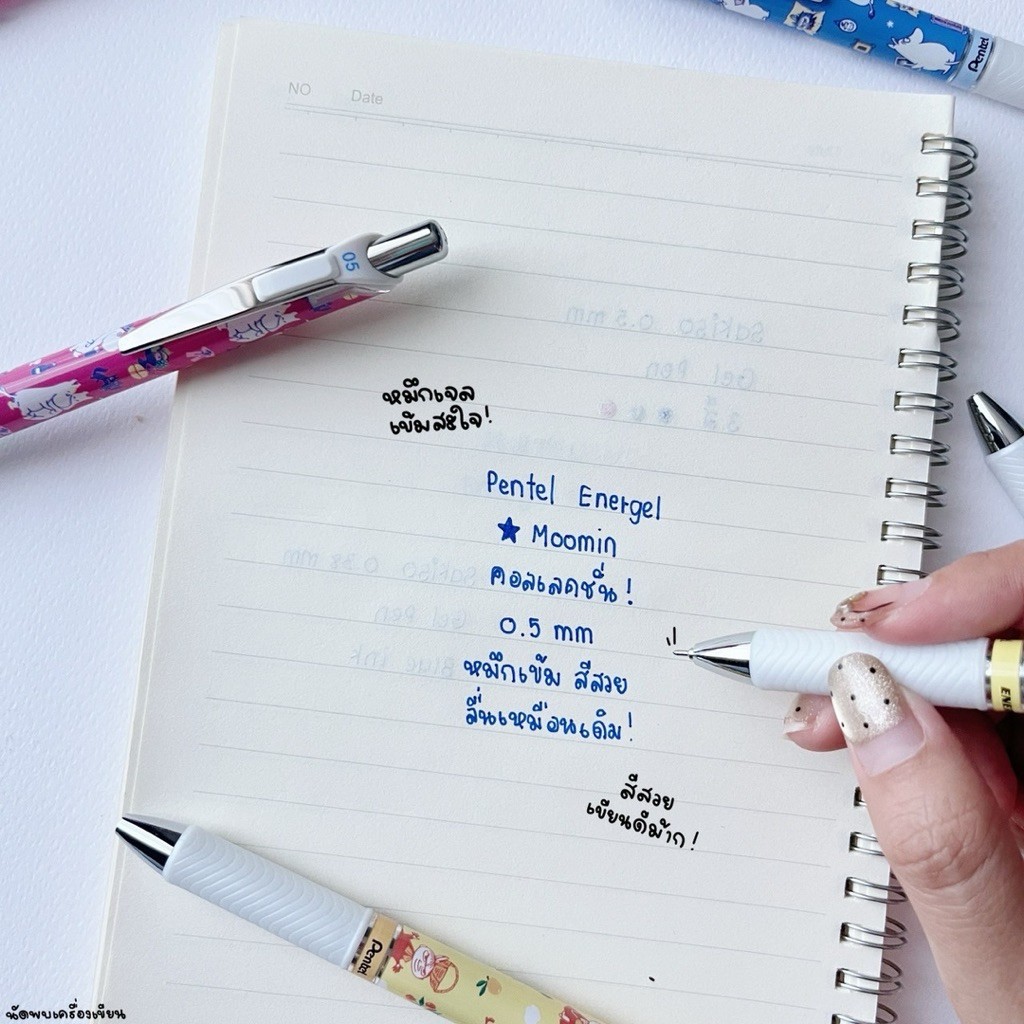 Pentel
NO Date
05
Sakiso 0.5 mm
Gel Pen
3 สี
หมึกเจล
เข้มสะใจ!
Pentel Energel
★ Moomin
คอลเลคชั่น!
0.5 mm
หมึกเข้ม สีสวย
ลื่นเหมือนเดิม!
Sakiso 0.38 mm
Gel Pen
Blue ink
สีสวย
เขียนดีม้าก!
Pentel
นัดพบเครื่องเขียน